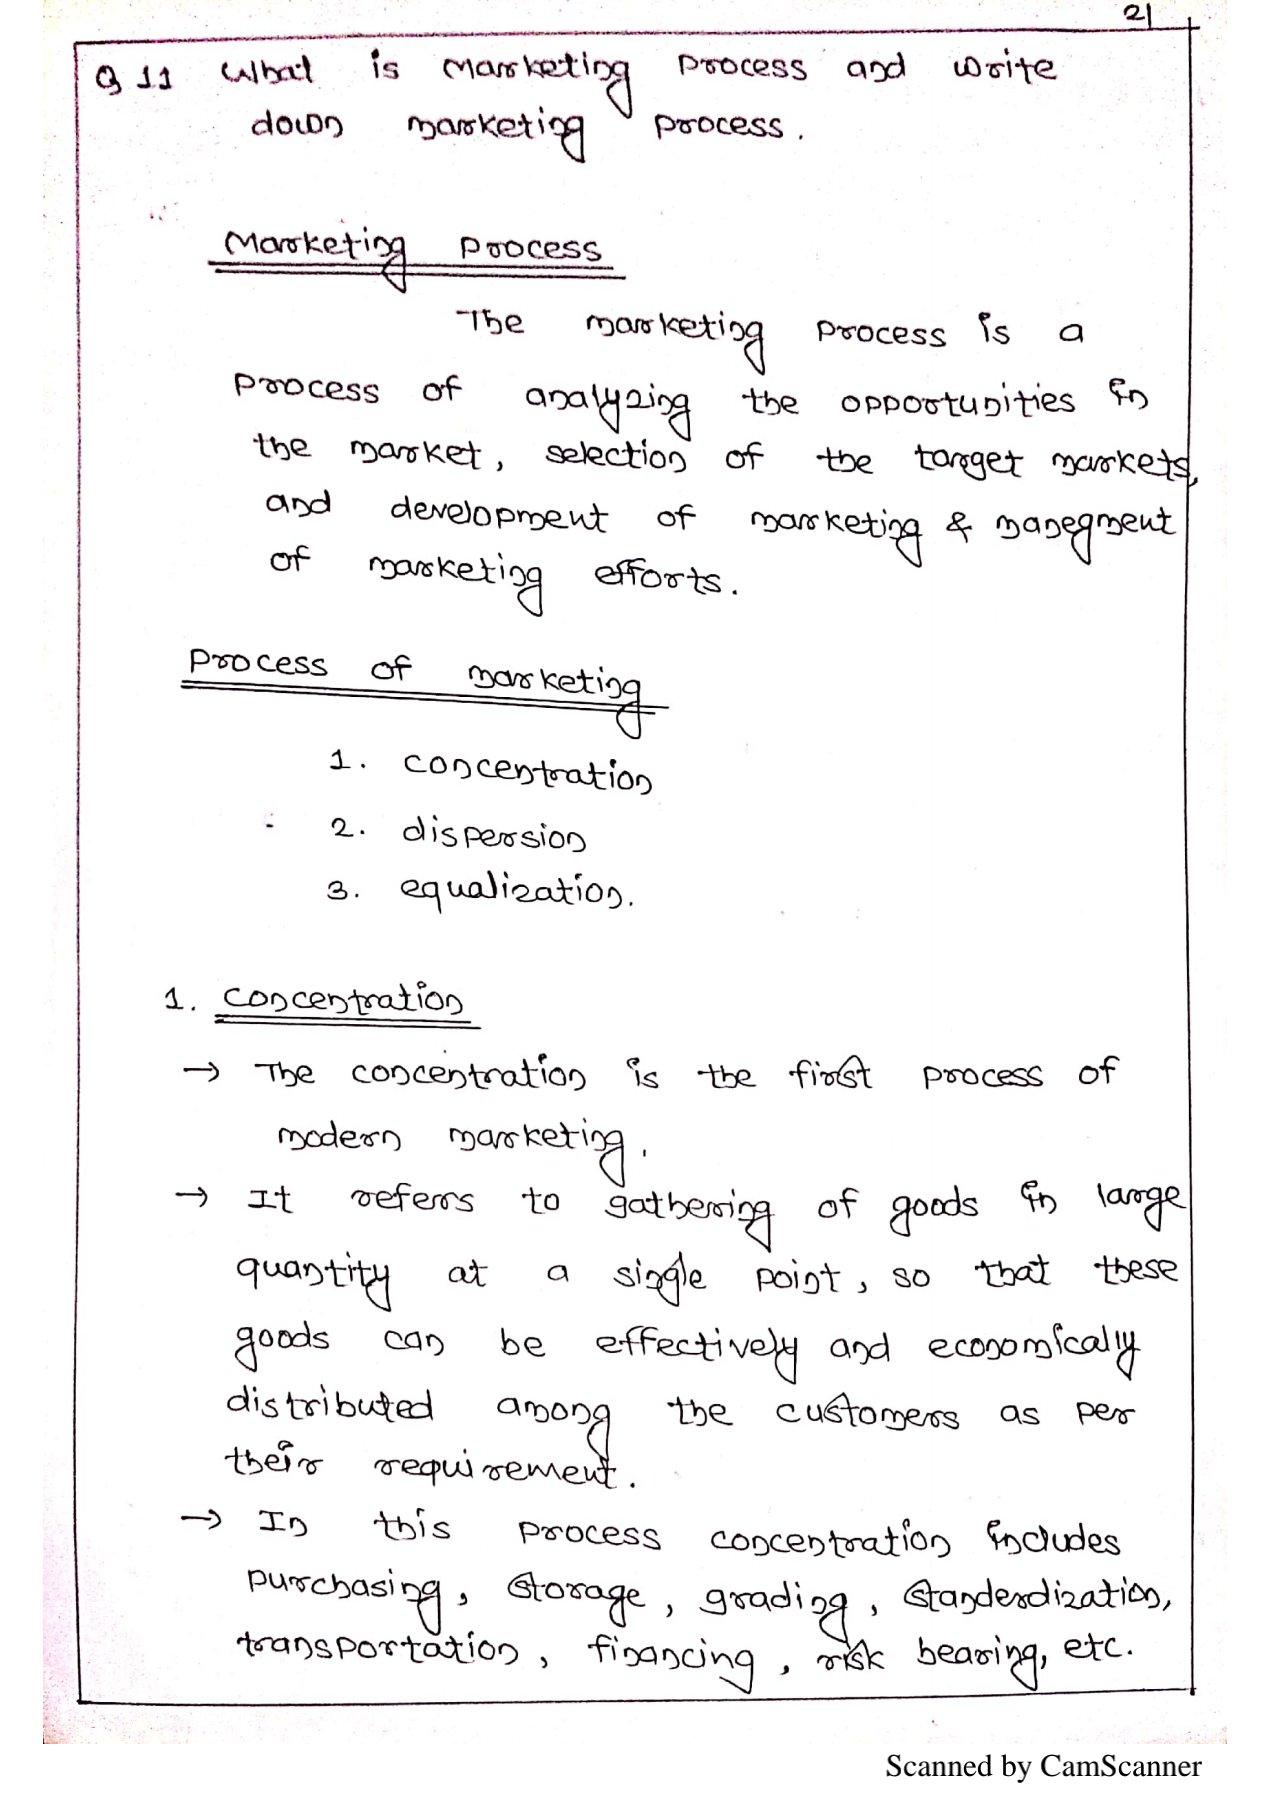 21
Q 11 What is marketing process and write
down marketing process.
Marketing process
The marketing process is a
process of analyzing the opportunities in
the market, selection of the target markets,
and development of marketing & manegment
of marketing efforts.
Process of marketing
1. concentration
2. dispersion
3. equalization.
1. concentration
→ The concentration is the first process of
modern marketing.
→ It refers to gathering of goods in large
quantity at a single point, so that these
goods can be effectively and economically
distributed among the customers as per
their requirement.
→ In this process concentration includes
purchasing, storage, grading, standerdization,
transportation, financing, risk bearing, etc.
Scanned by CamScanner